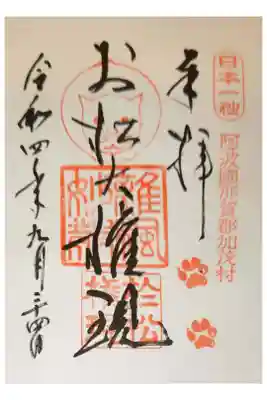 日本一社
阿波國那賀郡加茂村
奉拝
お松大權現
令和四年九月二十四日